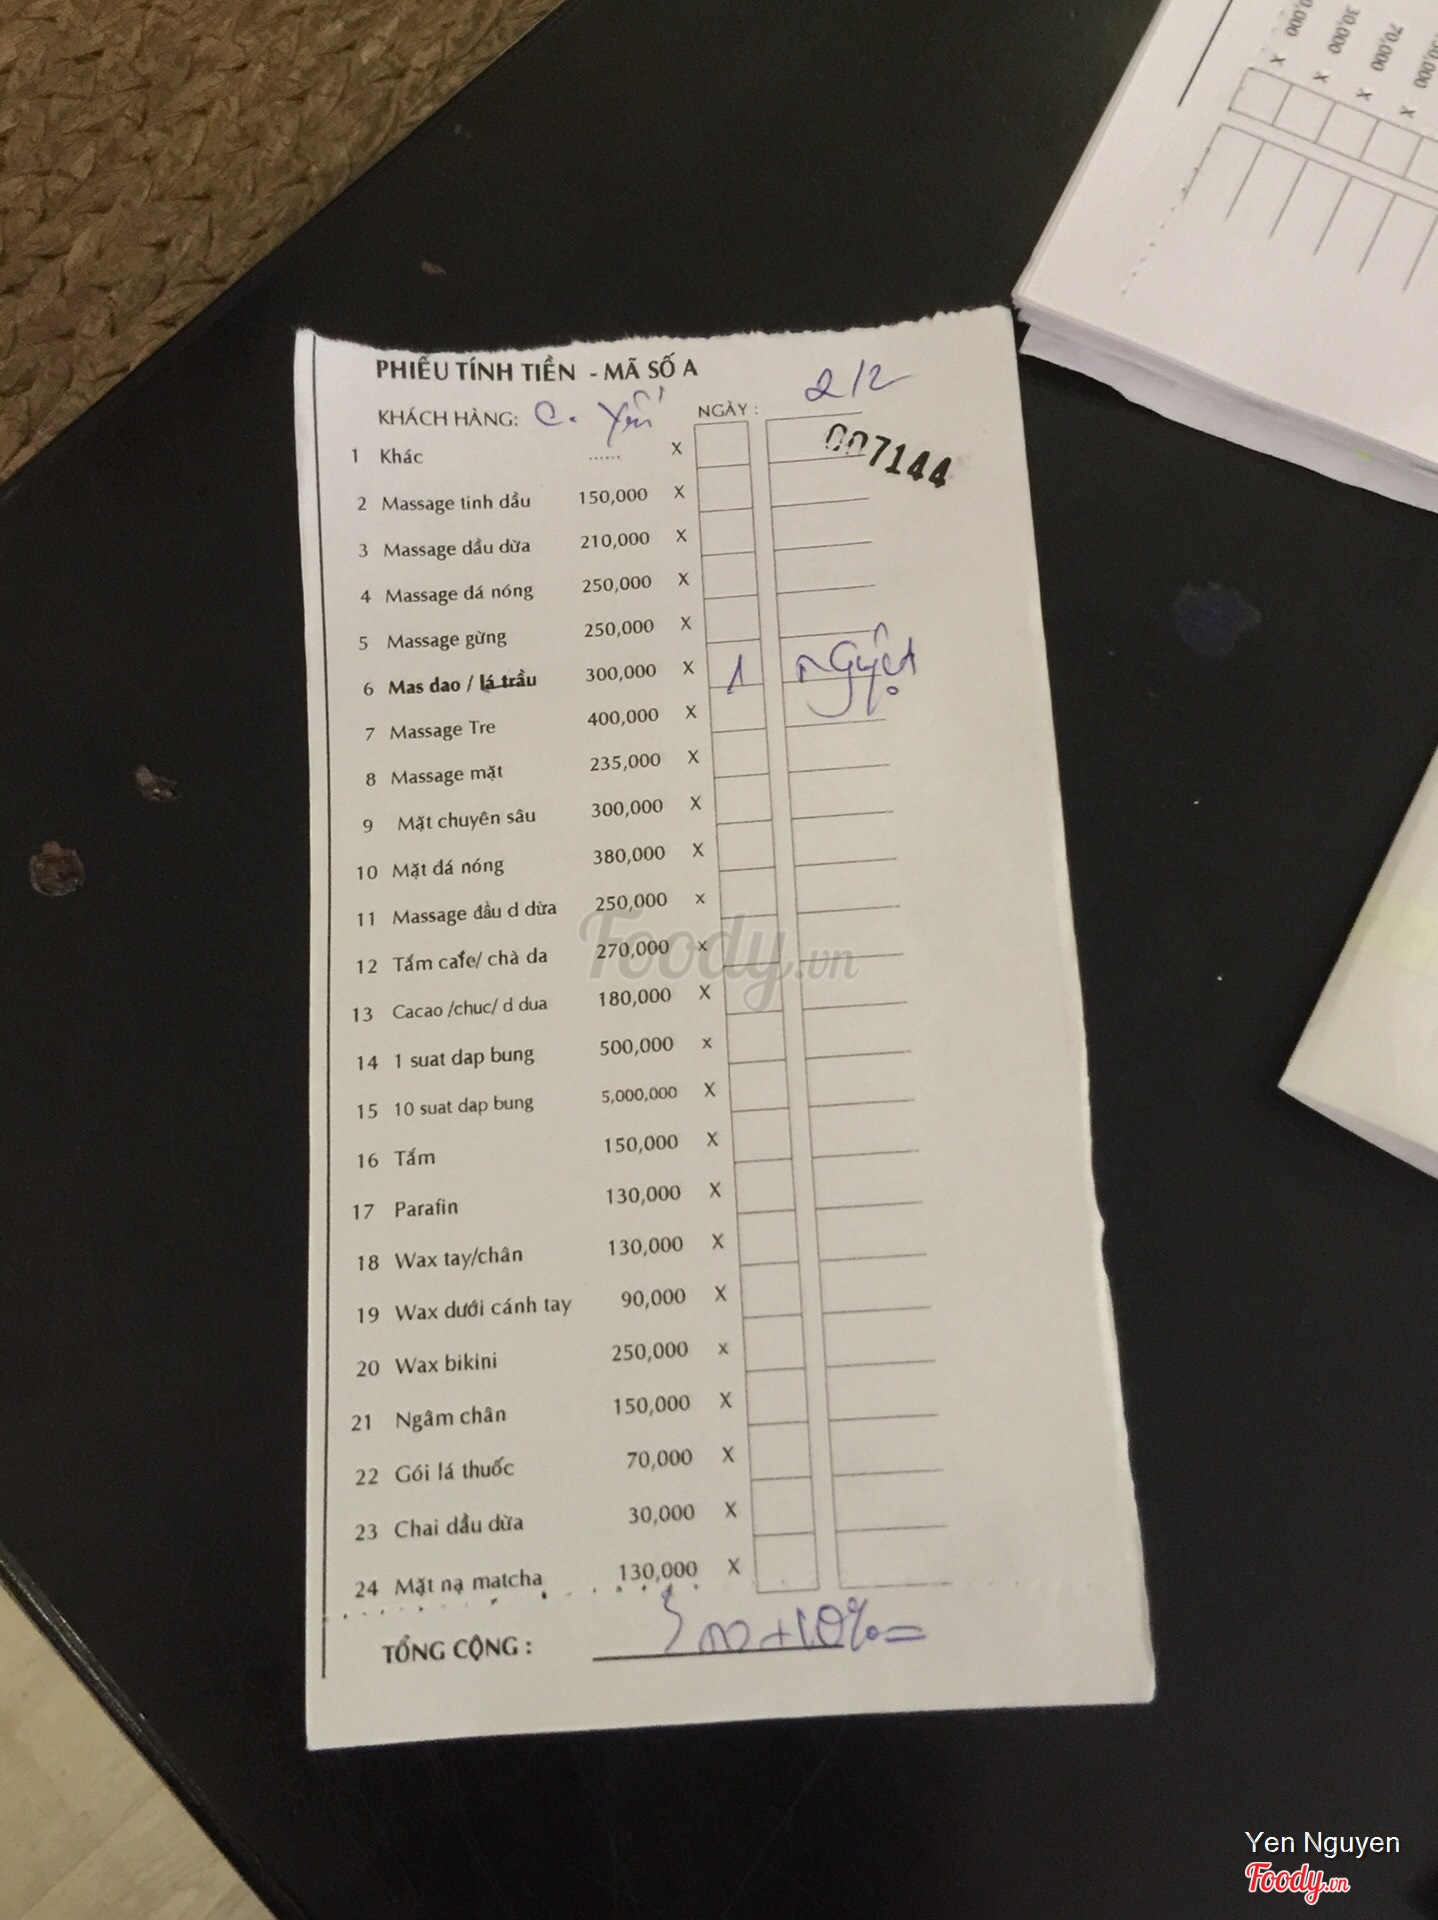 PHIẾU TÍNH TIỀN - MÃ SỐ A
KHÁCH HÀNG: C. Yến NGÀY: 2/2
007144
1 Khác ...... X
2 Massage tinh dầu 150,000 X
3 Massage dầu dừa 210,000 X
4 Massage đá nóng 250,000 X
5 Massage gừng 250,000 X
6 Mas dao / lá trầu 300,000 X 1 nguyệt
7 Massage Tre 400,000 X
8 Massage mặt 235,000 X
9 Mặt chuyên sâu 300,000 X
10 Mặt đá nóng 380,000 X
11 Massage đầu d dừa 250,000 x
12 Tắm cafe/ chà da 270,000 x
13 Cacao /chuc/ d dua 180,000 X
14 1 suat dap bung 500,000 x
15 10 suat dap bung 5,000,000 X
16 Tắm 150,000 X
17 Parafin 130,000 X
18 Wax tay/chân 130,000 X
19 Wax dưới cánh tay 90,000 X
20 Wax bikini 250,000 x
21 Ngâm chân 150,000 X
22 Gói lá thuốc 70,000 X
23 Chai dầu dừa 30,000 X
24 Mặt nạ matcha 130,000 X
TỔNG CỘNG : 300 + 10% =
Foody.vn
0,000 X
30,000 X
70,000 X
30,000 X
Yen Nguyen
Foody.vn